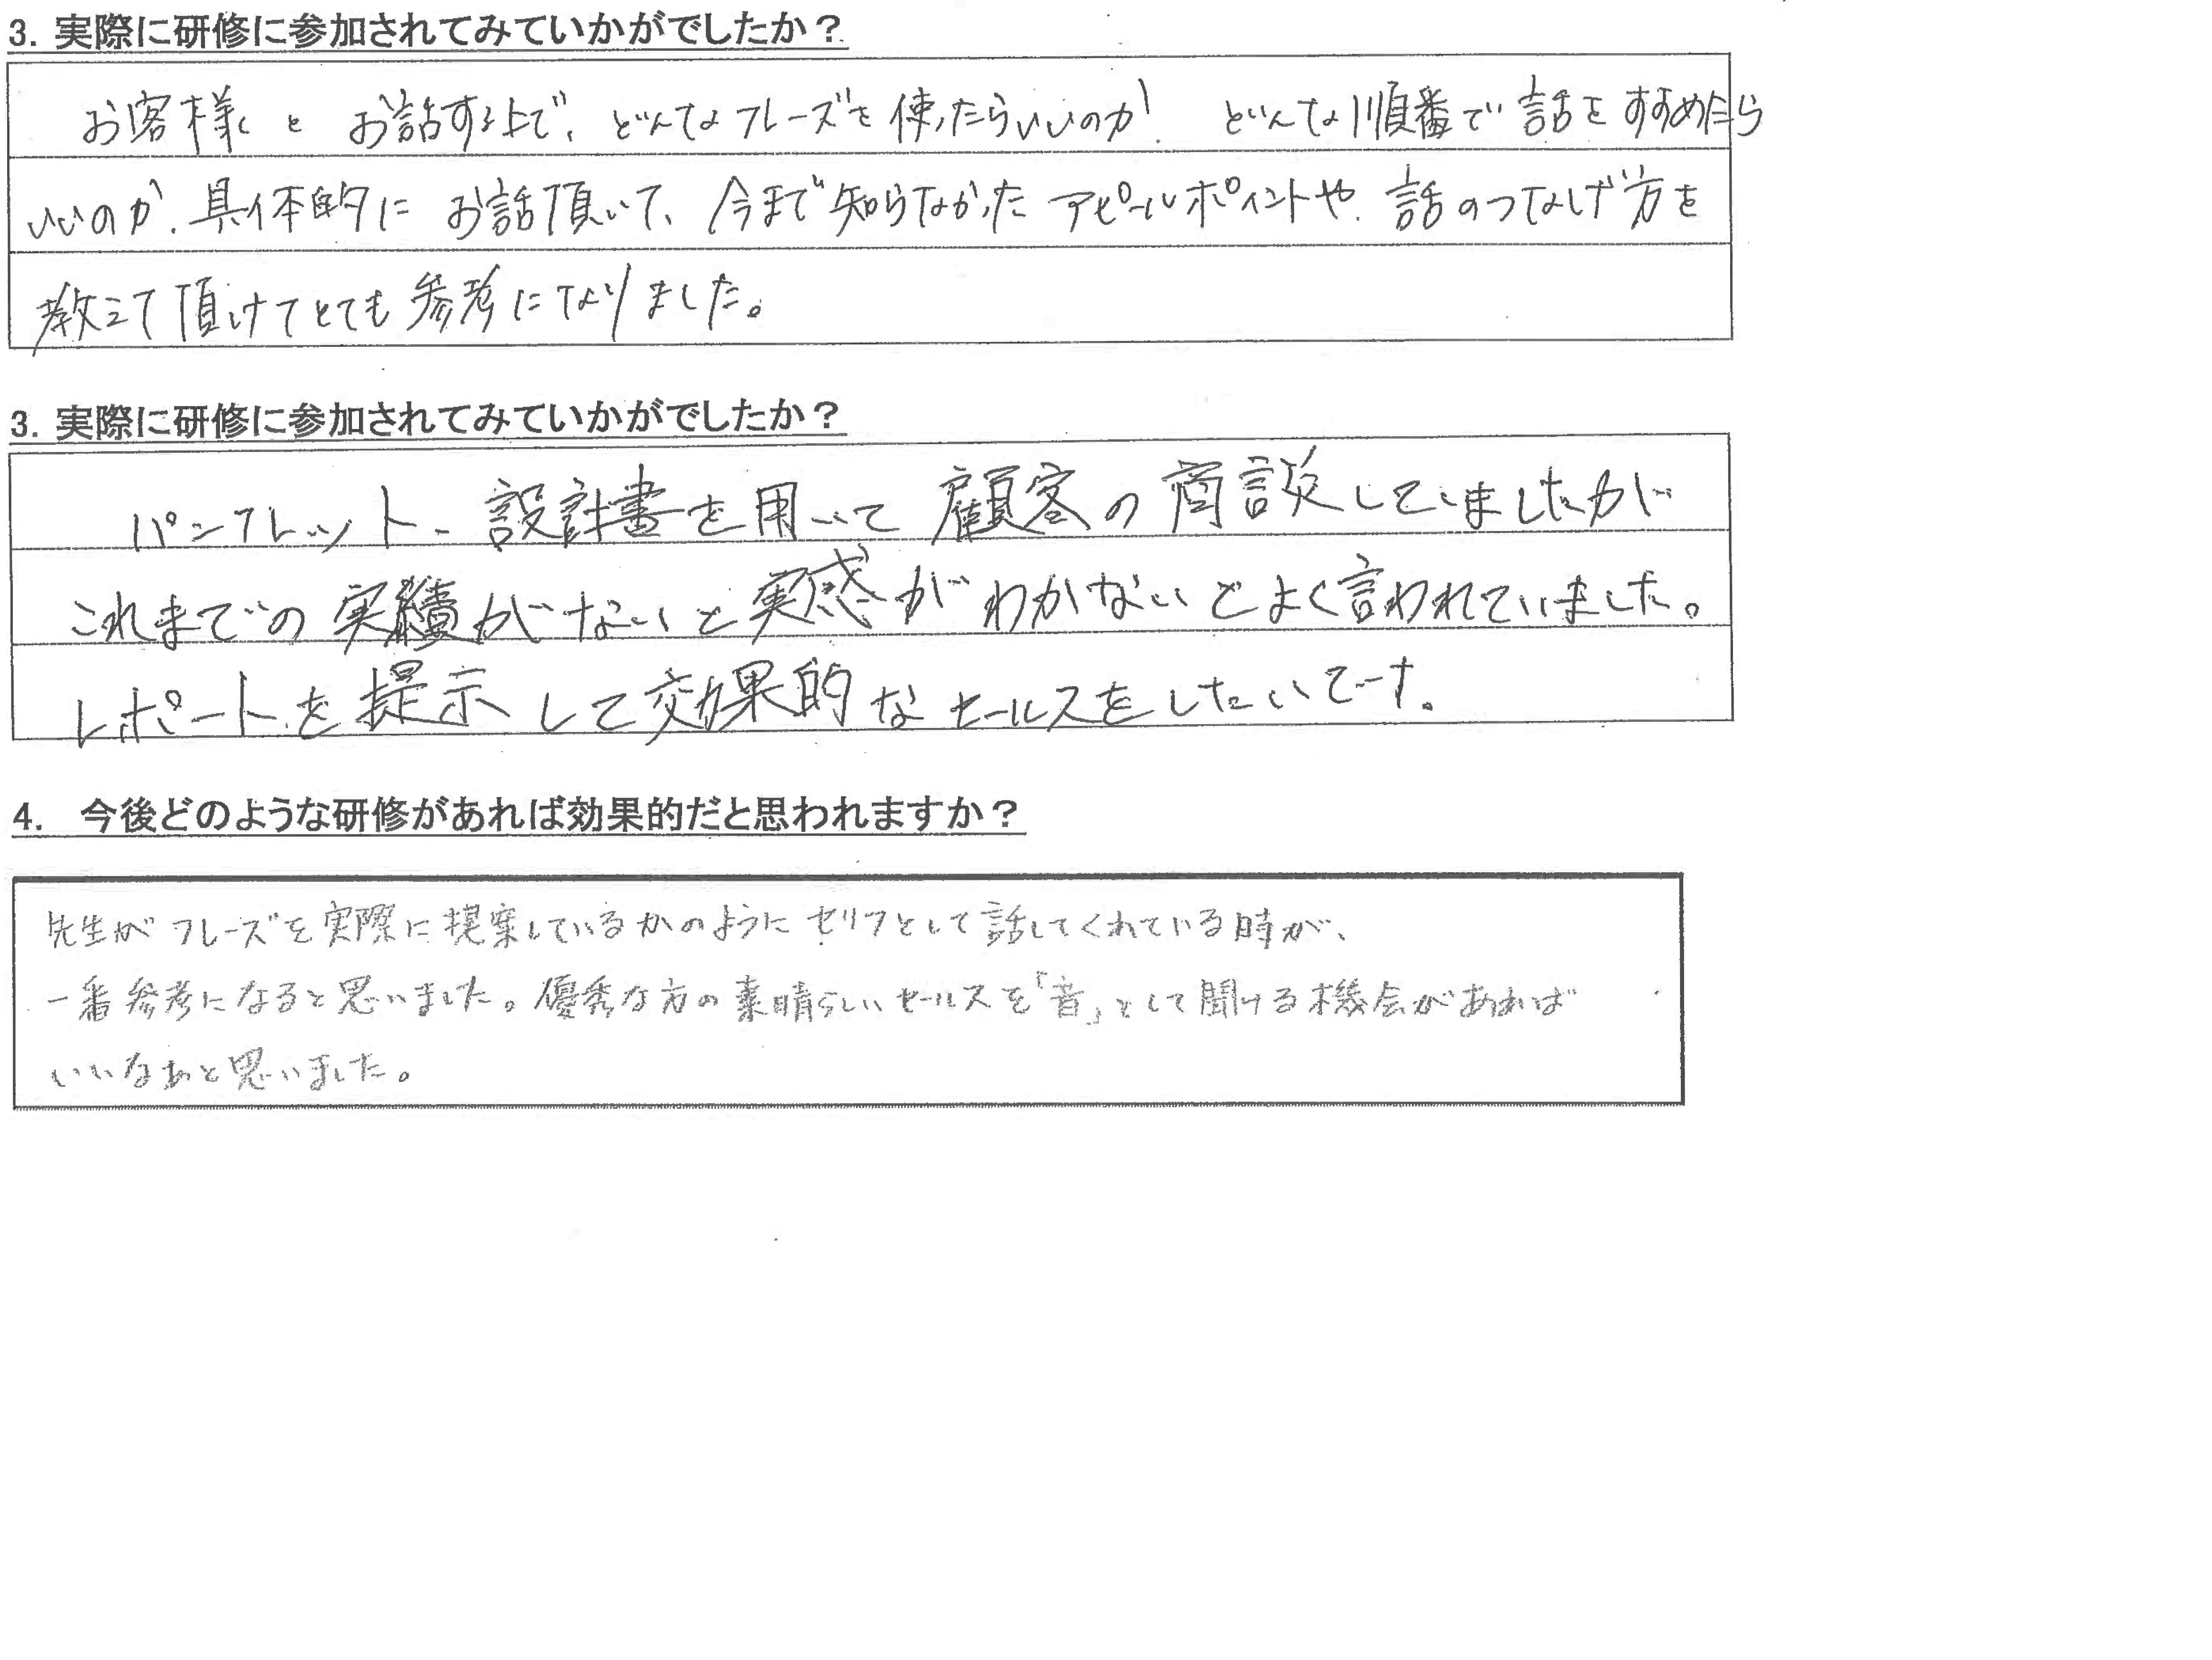 3. 実際に研修に参加されてみていかがでしたか？
お客様と お話する上で、どんなフレーズを使ったらいいのか、どんな順番で話をすすめたら
いいのか、具体的に お話頂いて、今まで知らなかった アピールポイントや、話のつなげ方を
教えて頂けてとても参考になりました。
3. 実際に研修に参加されてみていかがでしたか？
パンフレット、設計書を用いて 顧客の商談していましたが
これまでの実績がないと実感がわかないとよく言われていました。
レポートを提示して効果的なセールスをしたいです。
4. 今後どのような研修があれば効果的だと思われますか？
先生が フレーズを実際に提案しているかのように セリフとして話してくれている時が、
一番参考になると思いました。優秀な方の素晴らしいセールスを「音」として聞ける機会があれば
いいなぁと思いました。